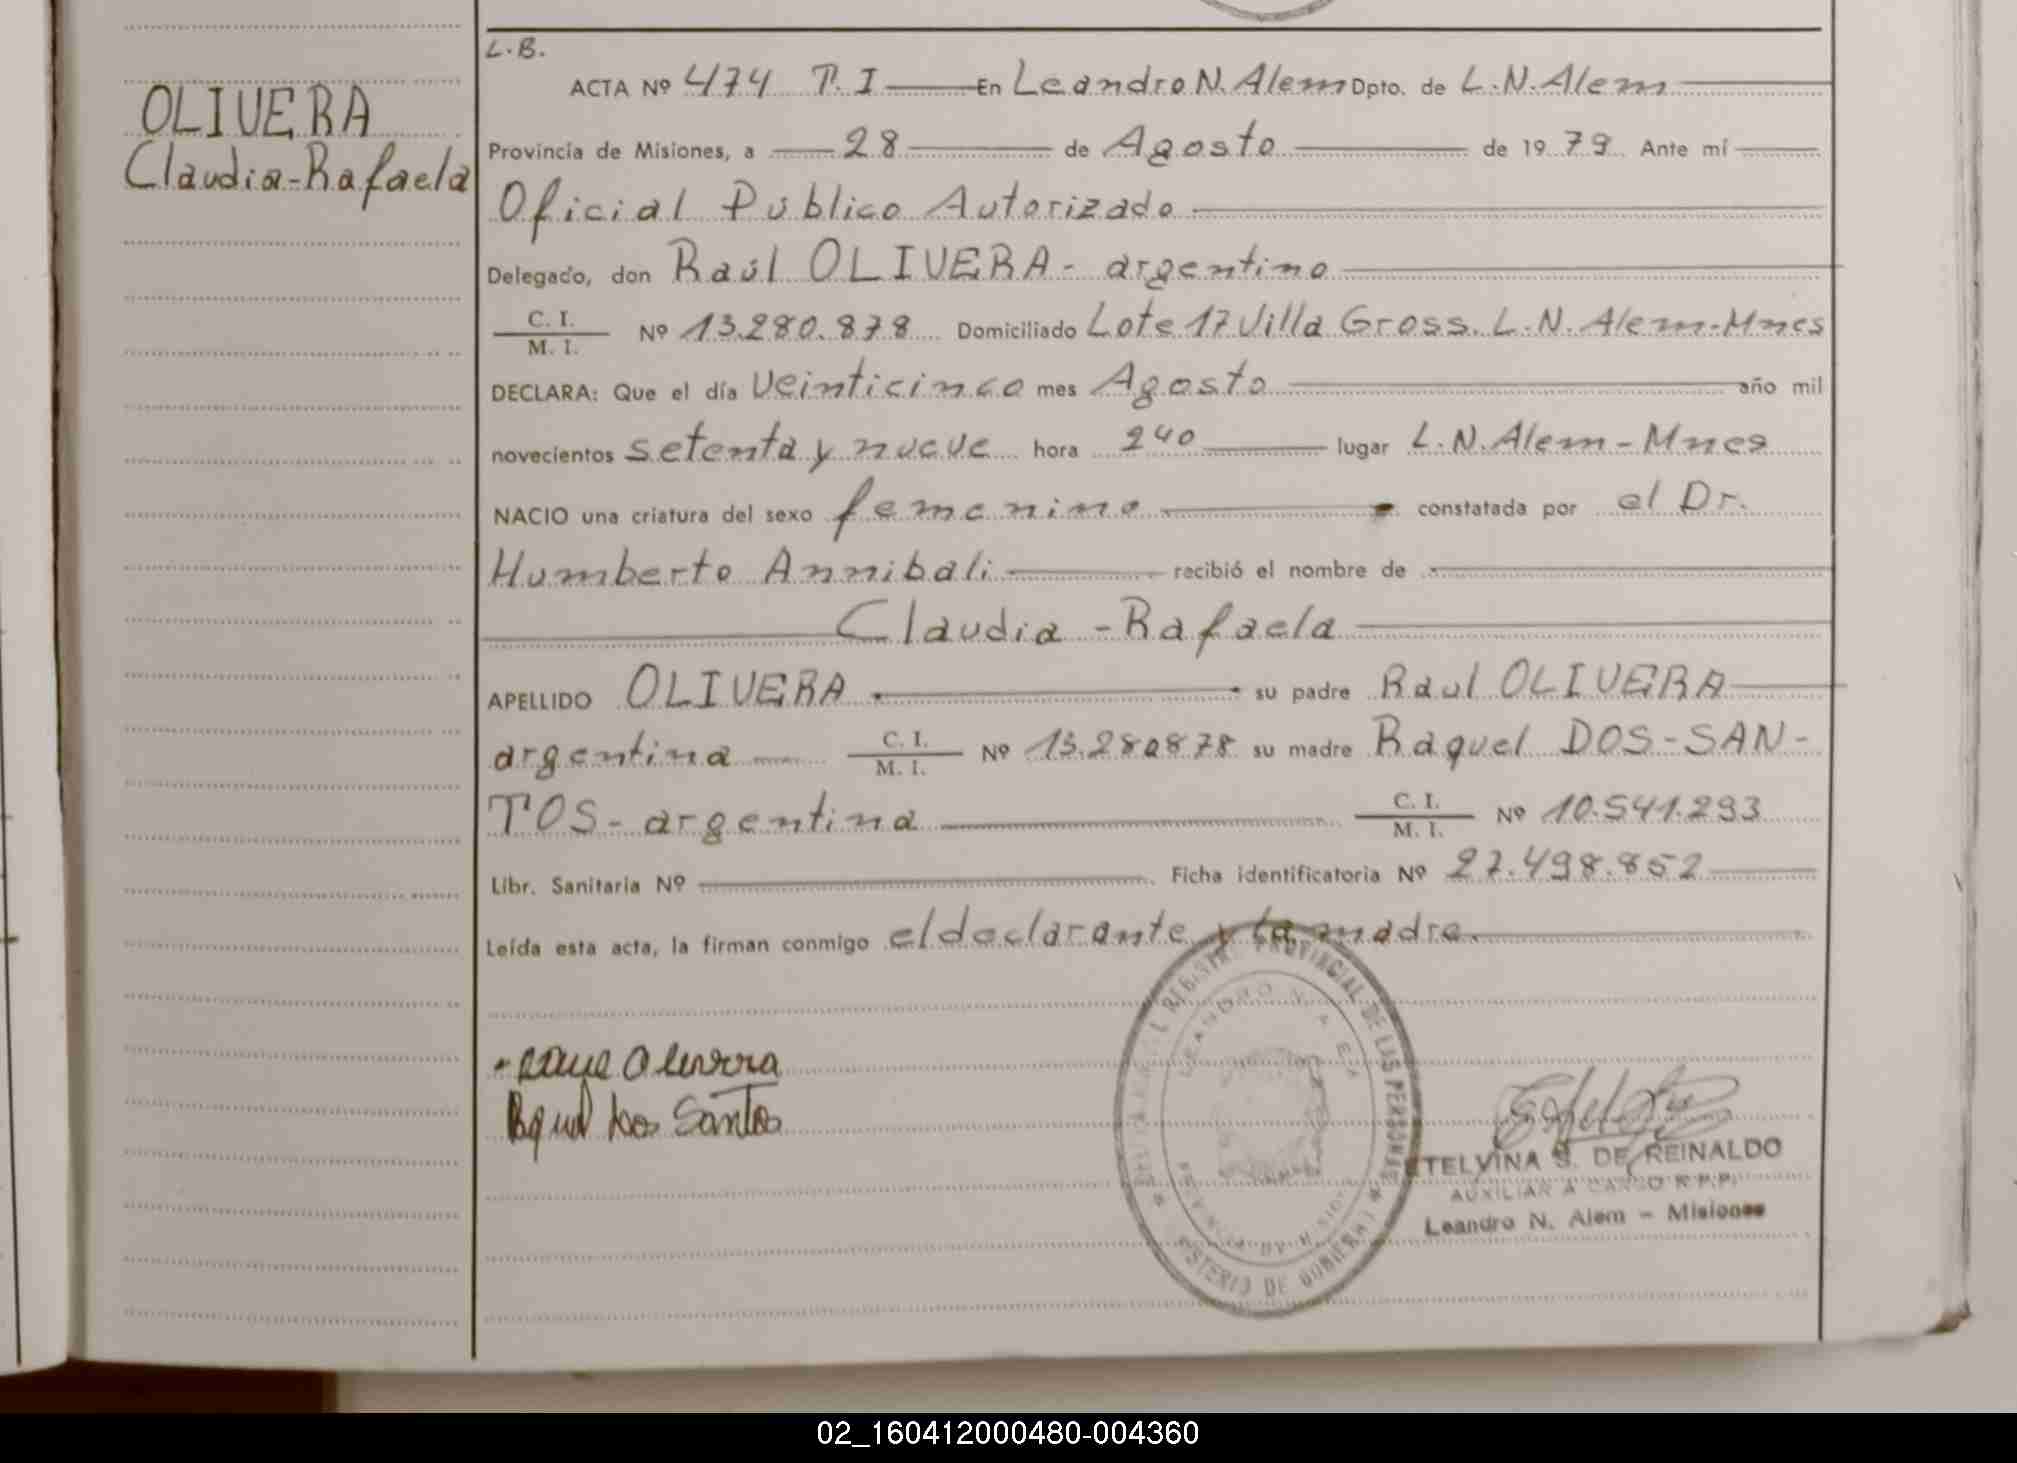 L.B.
OLIVERA
Claudia-Rafaela
ACTA Nº 474 T. I En Leandro N. Alem Dpto. de L.N. Alem
Provincia de Misiones, a 28 de Agosto de 1979 Ante mí
Oficial Público Autorizado
Delegado, don Raúl OLIVERA - argentino
C. I.
M. I. Nº 13.280.878 Domiciliado Lote 17 Villa Gross. L.N. Alem-Mnes
DECLARA: Que el día Veinticinco mes Agosto año mil
novecientos setenta y nueve hora 240 lugar L.N. Alem-Mnes
NACIO una criatura del sexo femenino constatada por el Dr.
Humberto Annibali recibió el nombre de
Claudia - Rafaela
APELLIDO OLIVERA su padre Raul OLIVERA
argentina C. I.
M. I. Nº 13.280878 su madre Raquel DOS-SAN-
TOS - argentina C. I.
M. I. Nº 10.541.293
Libr. Sanitaria Nº Ficha identificatoria Nº 27.498.852
Leída esta acta, la firman conmigo el declarante y la madre.
Dos Santos
REGISTRO PROVINCIAL DE LAS PERSONAS
LEANDRO N. ALEM
PROVINCIA DE MISIONES
DE GOBIERNO
ETELVINA S. DE REINALDO
AUXILIAR A CARGO R.P.P.
Leandro N. Alem - Misiones
02_160412000480-004360